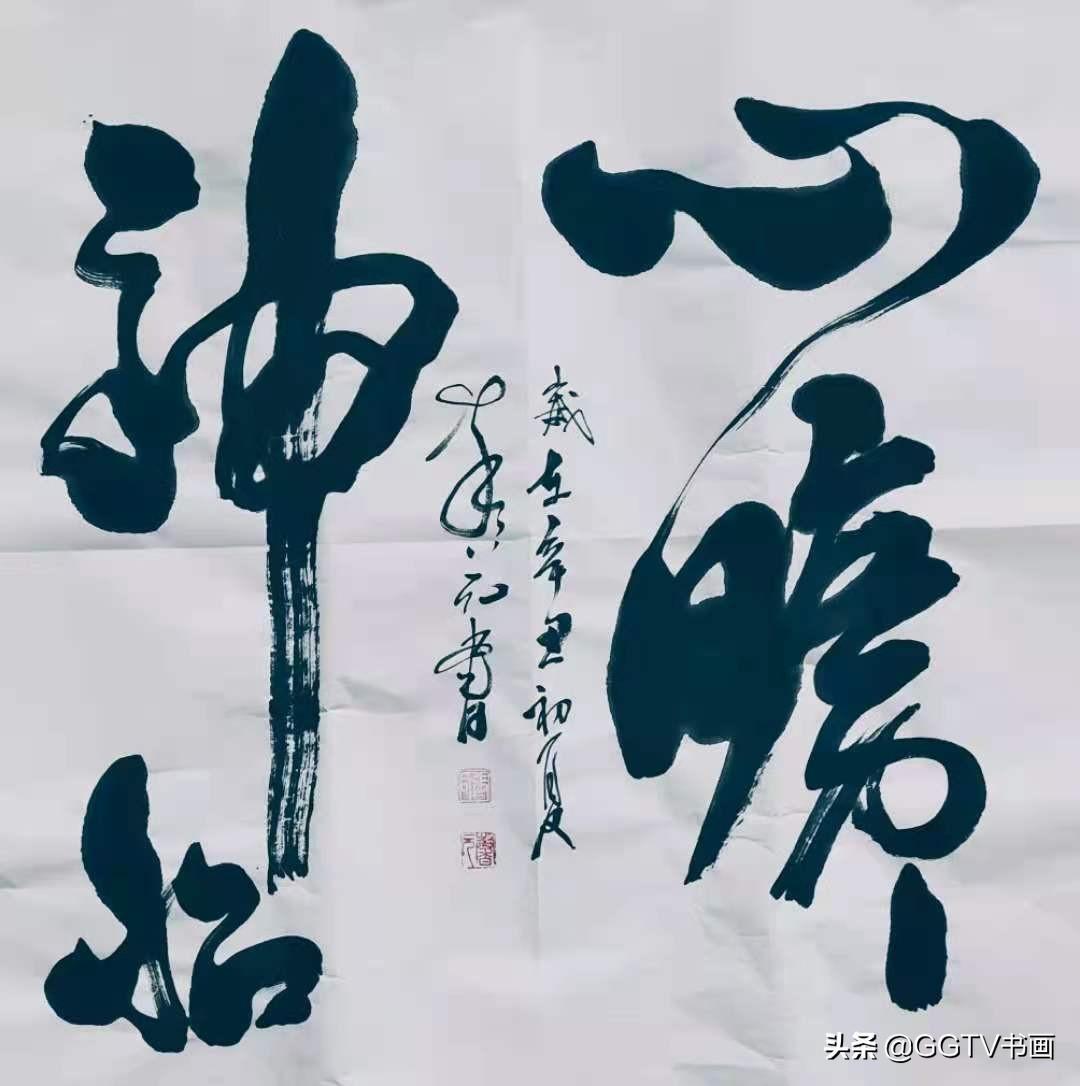 心曠
神怡
歲在辛丑初夏
書
头条 @GGTV书画